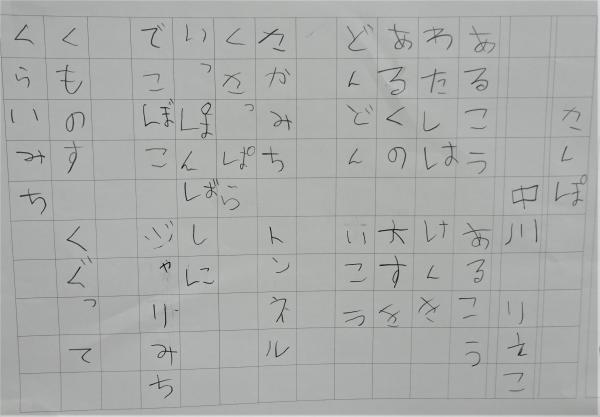 さんぽ
中川りえこ
あるこう あるこう
わたしは けんき
あるくの 大すき
どんどん いこう
さかみち トンネル
くさっぱら
いっぽんばしに
でこぼこ じゃりみち
くものす くぐって
くらいみち